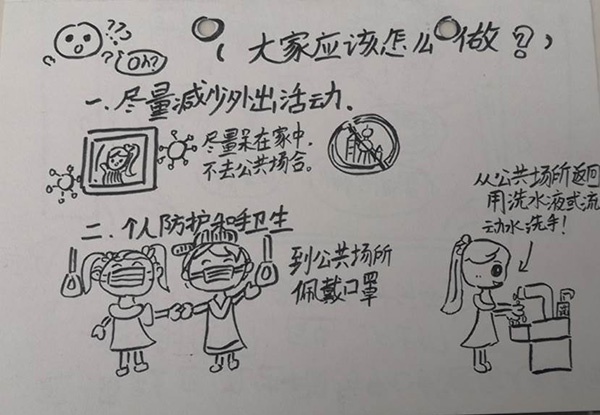 ???
Oh?
(大家应该怎么做?)
一、尽量减少外出活动.
尽量呆在家中,
不去公共场合。
二、个人防护和手卫生
到公共场所
佩戴口罩
从公共场所返回
用洗水液或流
动水洗手!